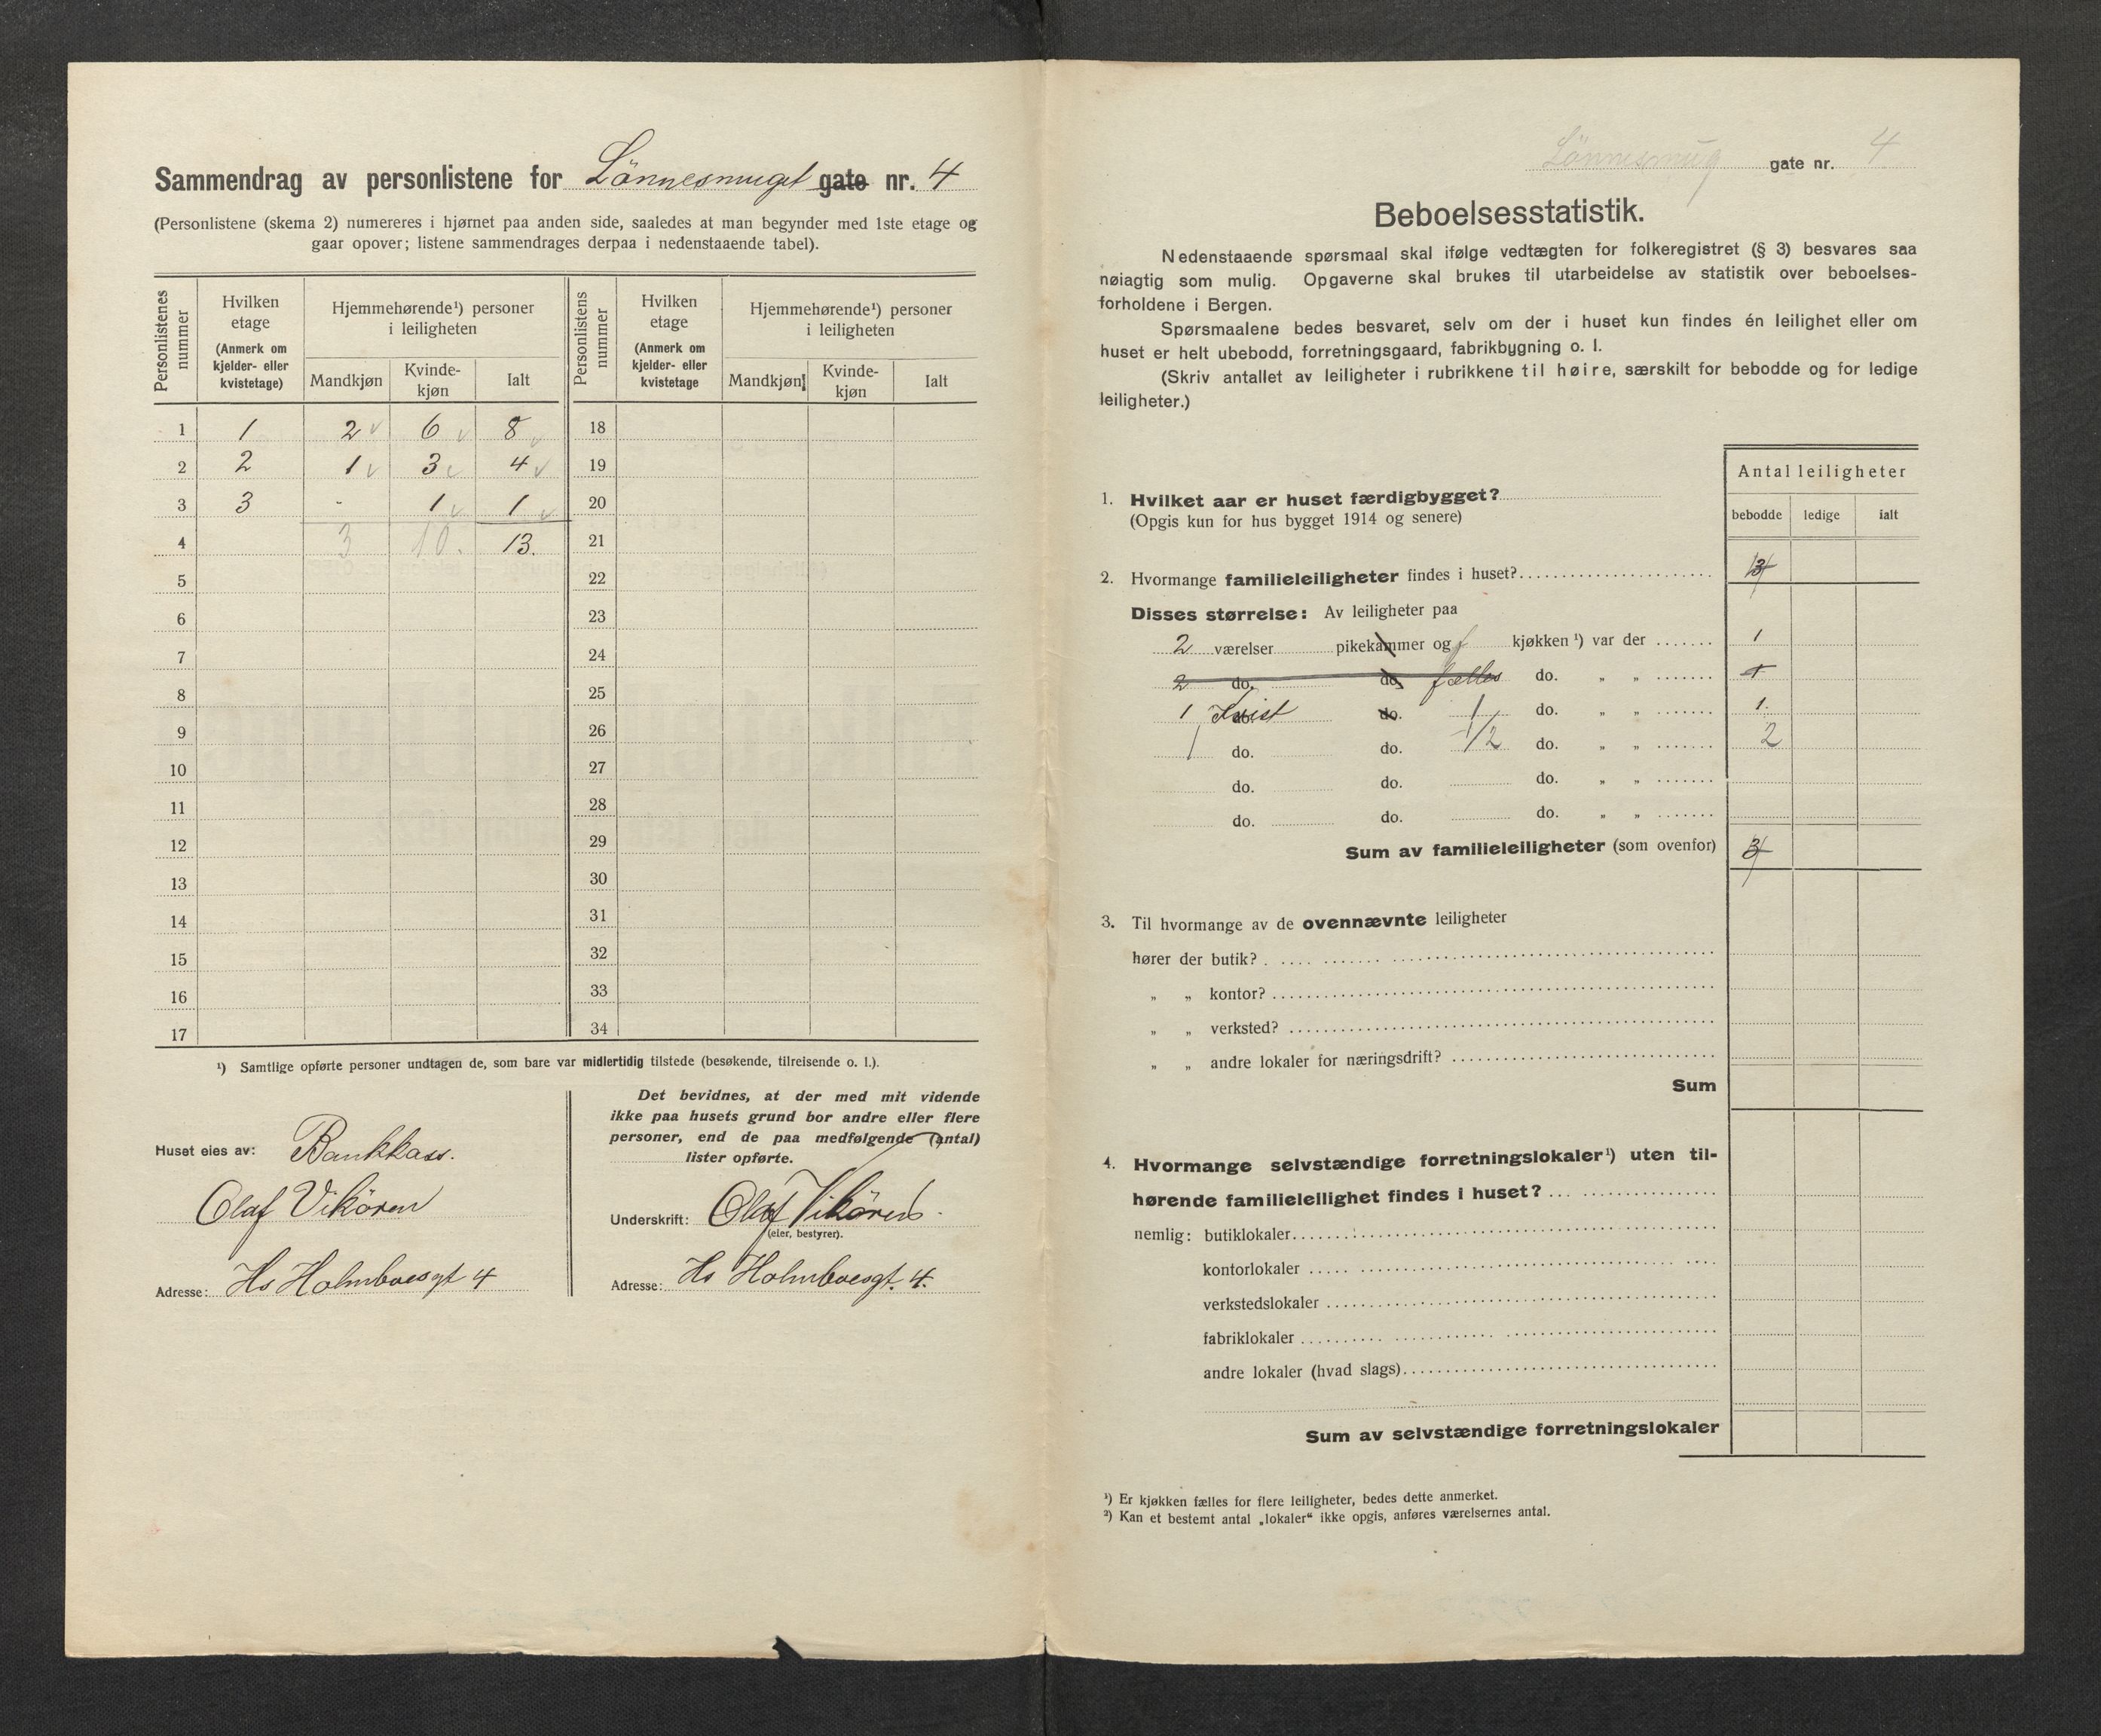 Sammendrag av personlistene for Lönnesmuget gate nr. 4
(Personlistene (skema 2) numereres i hjørnet paa anden side, saaledes at man begynder med 1ste etage og
gaar opover; listene sammendrages derpaa i nedenstaaende tabel).
Personlistenes nummer
Hvilken etage (Anmerk om kjelder- eller kvistetage)
Hjemmehørende¹) personer i leiligheten
Mandkjøn Kvinde-kjøn Ialt
Personlistens nummer
Hvilken etage (Anmerk om kjelder- eller kvistetage
Hjemmehørende¹) personer i leiligheten
Mandkjøn Kvinde-kjøn Ialt
1 1 2 6 8 18
2 2 1 3 4 19
3 3 - 1 1 20
4 3 10. 13. 21
5 22
6 23
7 24
8 25
9 26
10 27
11 28
12 29
13 30
14 31
15 32
16 33
17 34
¹) Samtlige opførte personer undtagen de, som bare var midlertidig tilstede (besøkende, tilreisende o. l.).
Huset eies av: Bankkass.
Olaf Vikören
Adresse: Hs Holmboesgt 4
Det bevidnes, at der med mit vidende
ikke paa husets grund bor andre eller flere
personer, end de paa medfølgende (antal)
lister opførte.
Underskrift: Olaf Vikören
(eier, bestyrer).
Adresse: Hs Holmboesgt. 4.
Lönnesmug gate nr. 4
Beboelsesstatistik.
Nedenstaaende spørsmaal skal ifølge vedtægten for folkeregistret (§ 3) besvares saa
nøiagtig som mulig. Opgaverne skal brukes til utarbeidelse av statistik over beboelses-
forholdene i Bergen.
Spørsmaalene bedes besvaret, selv om der i huset kun findes én leilighet eller om
huset er helt ubebodd, forretningsgaard, fabrikbygning o. l.
(Skriv antallet av leiligheter i rubrikkene til høire, særskilt for bebodde og for ledige
leiligheter.)
Antal leiligheter
bebodde ledige ialt
1. Hvilket aar er huset færdigbygget?
(Opgis kun for hus bygget 1914 og senere)
2. Hvormange familieleiligheter findes i huset?
Disses størrelse: Av leiligheter paa
2 værelser pikekammer og kjøkken ¹) var der 1
2 do. do. fælles do. „ „ 1
1 Kvist do. do. 1 do. „ „ 1.
1 do. do. 1/2 do. „ „ 2
do. do. do. „ „
do. do. do. „ „
Sum av familieleiligheter (som ovenfor) 3
3. Til hvormange av de ovennævnte leiligheter
hører der butik?
„ „ kontor?
„ „ verksted?
„ „ andre lokaler for næringsdrift?
Sum
4. Hvormange selvstændige forretningslokaler¹) uten til-
hørende familieleilighet findes i huset?
nemlig: butiklokaler
kontorlokaler
verkstedslokaler
fabriklokaler
andre lokaler (hvad slags)
Sum av selvstændige forretningslokaler
¹) Er kjøkken fælles for flere leiligheter, bedes dette anmerket.
²) Kan et bestemt antal „lokaler“ ikke opgis, anføres værelsernes antal.